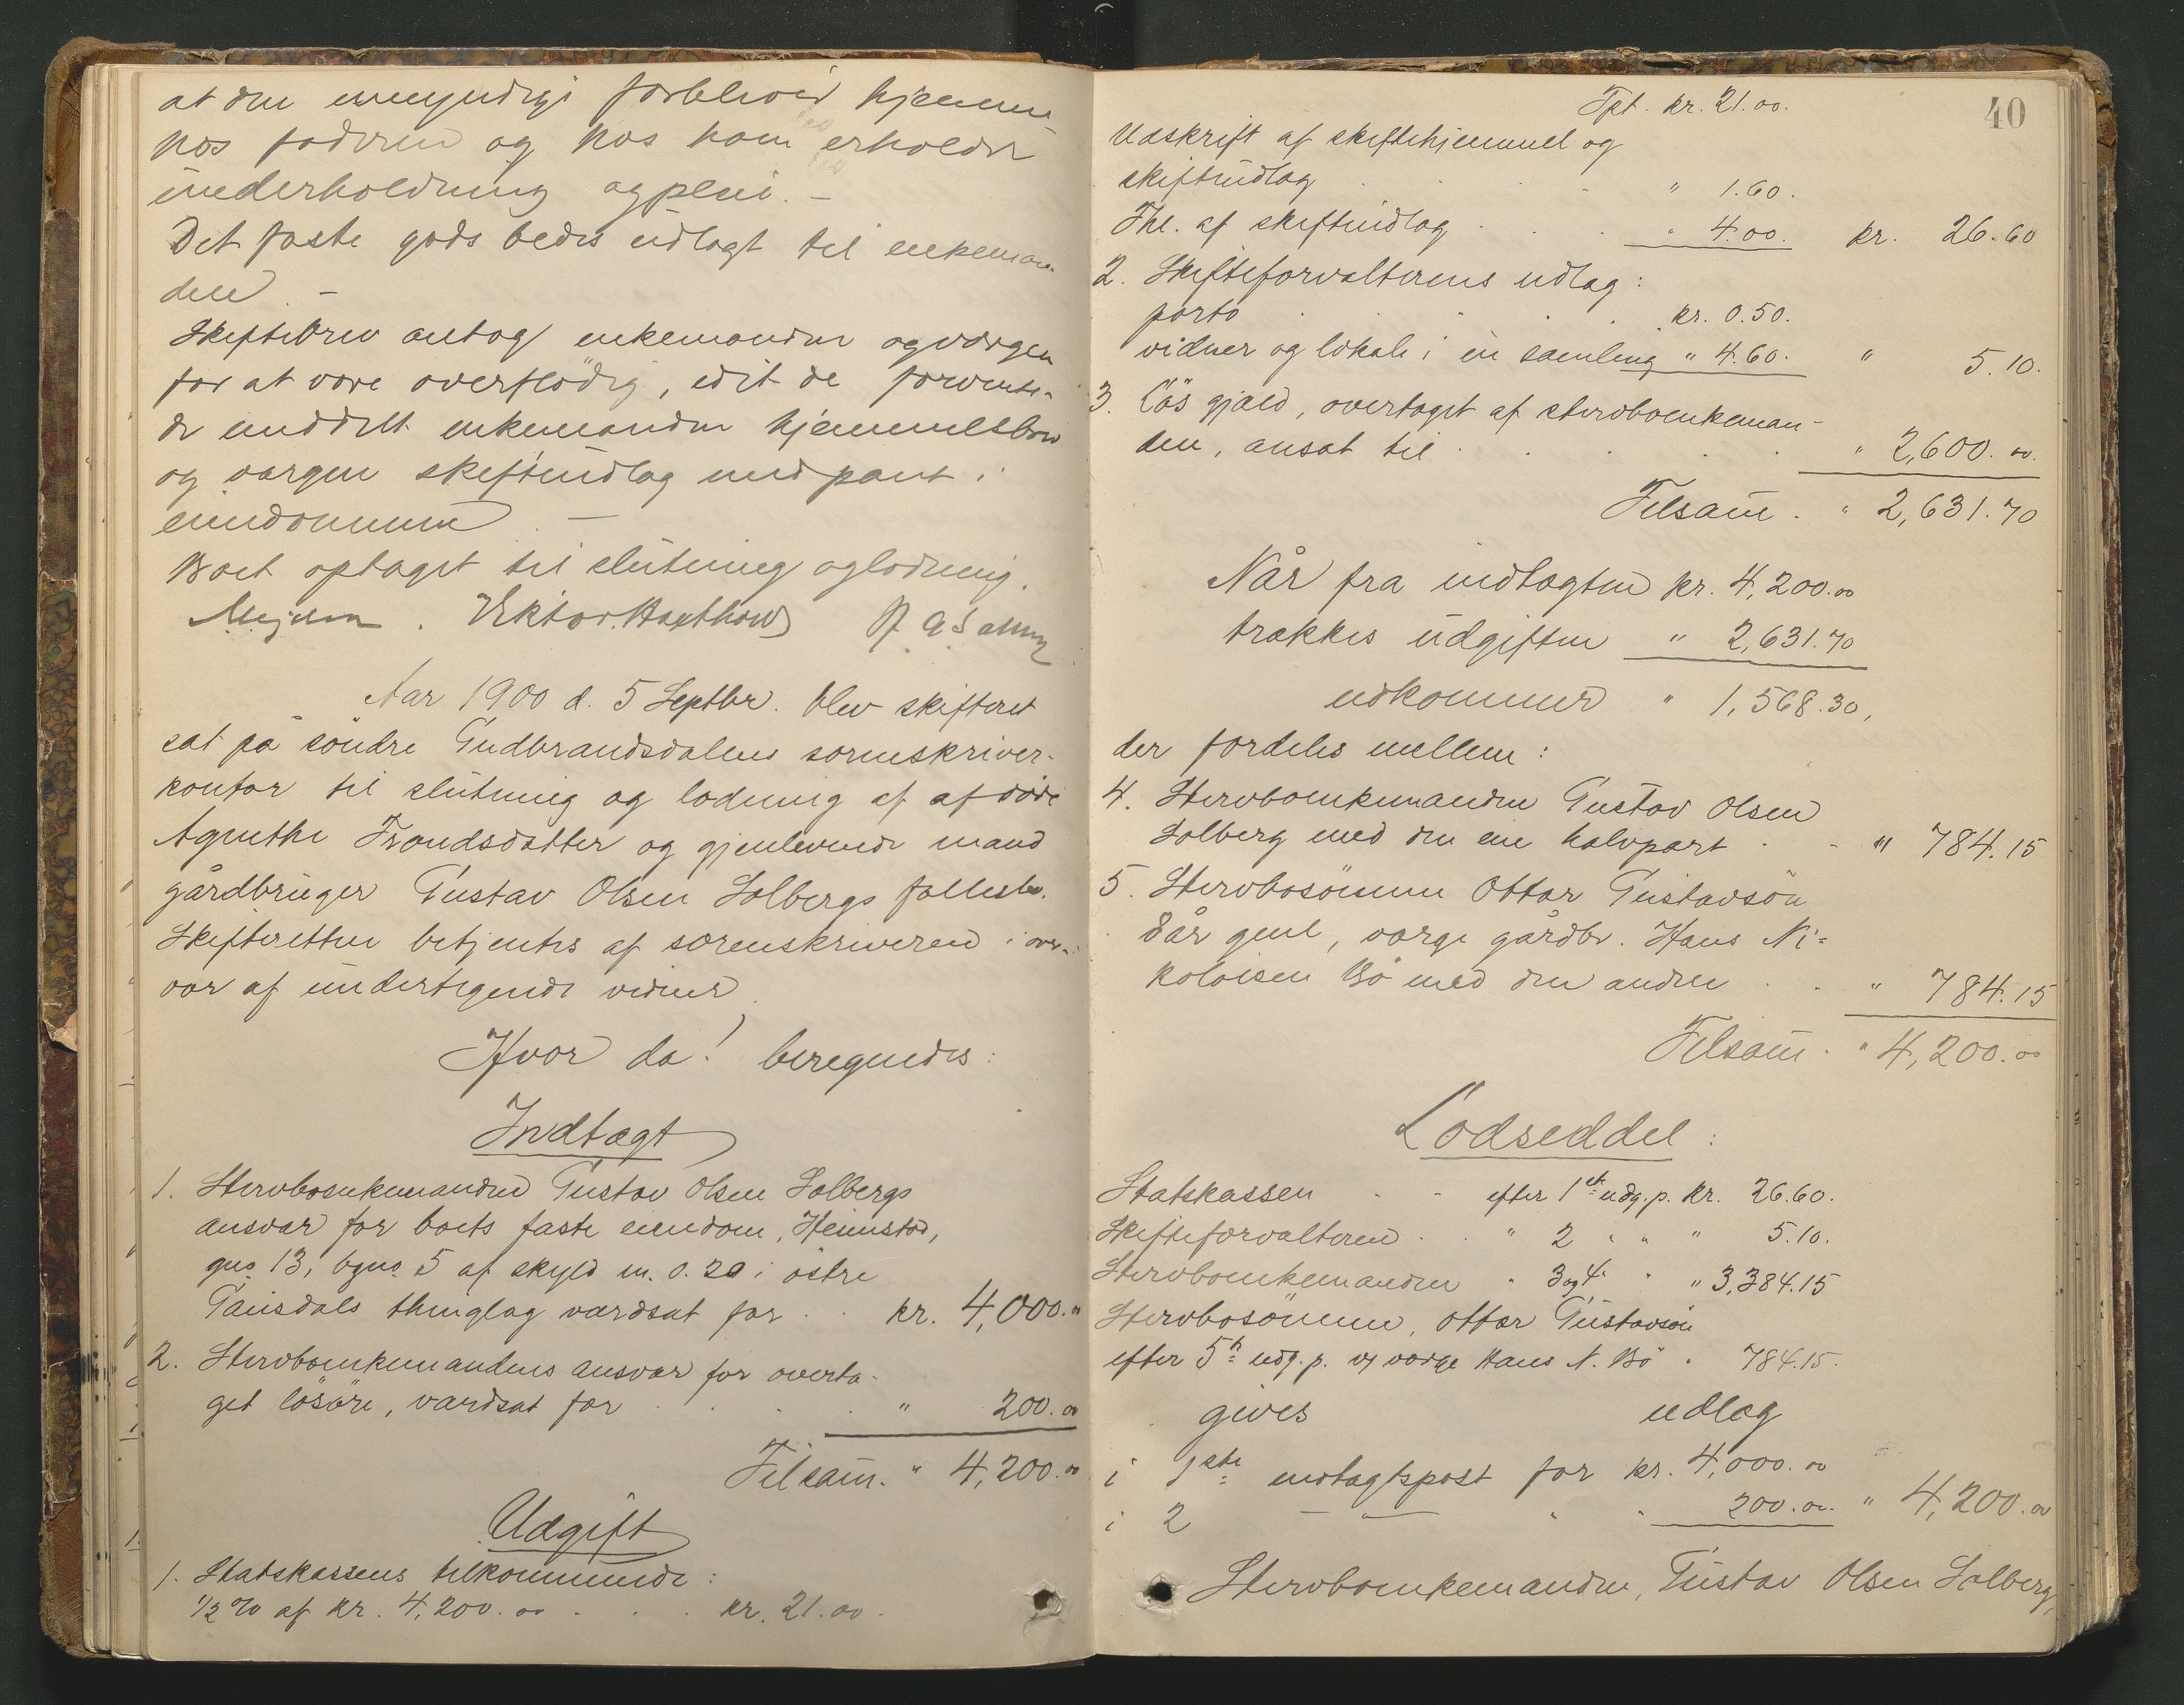 at den umyndige forbliver hjemme
hos faderen og hos ham erholder
underholdning og pleie. –
Det faste gods bedes udlagt til enkeman-
den. –
Skiftebrev antog enkemanden og værgen
for at være overflödig, idet de forvente-
de meddelt enkemanden hjemmelsbrev
og værgen skifteudlæg med pant i
eiendommen. –
Boet optaget til slutning og lodning.
Mejdell. Viktor Haxthow
Aar 1900 d. 5 Septbr. blev skifteret
sat på söndre Gudbrandsdalens sorenskriver-
kontor til slutning og lodning af afdöde
Agnethe Trondsdatter og gjenlevende mand
gårdbruger Gustav Olsen Solbergs fællesbo.
Skifteretten betjentes af sorenskriveren i over-
vær af undertegnede vidner.
Hvor da! beregnedes:
Indtægt
1. Stervboenkemanden Gustav Olsen Solbergs
ansvar for boets faste eiendom, Heimstad,
gno 13, bgno 5 af skyld m. 0.20 i östre
Gausdals thinglag værdsat for . . kr. 4,000.00
2. Stervboenkemandens ansvar for overta-
get lösöre, værdsat for . . . . " 200.00
Tilsam. " 4,200.00
Udgift
1. Statskassens tilkommende:
1/2 % af kr. 4,200.00 . . . kr. 21.00.
40
Tpt. kr. 21.00.
Udskrift af skiftehjemmel og
skifteudlæg . . . " 1.60.
Thl. af skifteudlæg . . . " 4.00. kr. 26.60
2. Skifteforvalterens udlæg:
porto . . . . kr. 0.50.
vidner og lokale i en samling " 4.60. " 5.10.
3. Lös gjæld, overtaget af stervboenkeman-
den, ansat til . . . . . " 2,600.00.
Tilsam. " 2,631.70
Når fra indtægten kr. 4,200.00
trækkes udgiften " 2,631.70
udkommer " 1,568.30,
der fordeles mellem:
4. Stervboenkemanden Gustav Olsen
Solberg med den ene halvpart . . " 784.15
5. Stervbosönnen Ottar Gustavsön
8 år gml, værge gårdbr. Hans Ni-
kolaisen Bö med den anden . . " 784.15
Tilsam. " 4,200.00
Lodseddel:
Statskassen . . efter 1ste udg.p. kr. 26.60.
Skifteforvalteren . . " 2 " " " 5.10.
Stervboenkemanden " 3 og 4 " " 3,384.15
Stervbosönnen, Ottar Gustavsön
efter 5te udg.p. v/ værge Hans N. Bö " 784.15.
gives udlæg
i 1ste indtægtspost for kr. 4,000.00
i 2 – " – " " 200.00. " 4,200.00
Stervboenkemanden, Gustav Olsen Solberg,